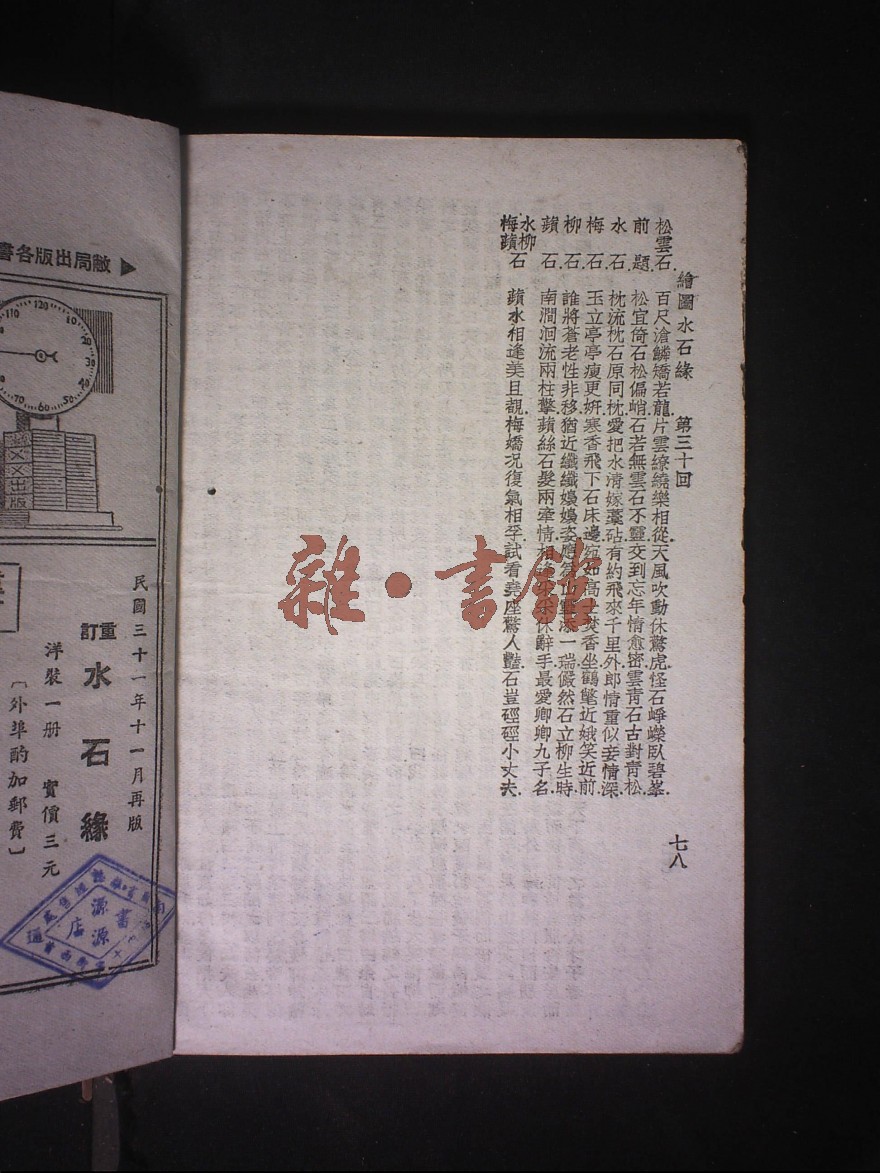 繪圖水石緣 第三十回 七八
松雲石 百尺滄鱗矯若龍片雲繚繞樂相從天風吹動休驚虎怪石崢嶸臥碧峯
前題 松宜倚石松偏峭石若無雲石不靈交到忘年情愈密雲靑石古對靑松
水石 枕流枕石原同枕愛把水淸嫁藁砧有約飛來千里外郎情重似妾情深
梅石 玉立亭亭瘦更妍寒香飛下石床邊宛如高士焚香坐鶴氅近娥笑近前
柳石 誰將蒼老性非移猶近纖纖嬝嬝姿 一瑞儼然石立柳生時
蘋石 南澗洄流兩柱擎蘋絲石髮兩牽情相 休辭手最愛卿卿九子名
水柳梅蘋石 蘋水相逢美且覩梅嬌况復氣相孚試看堯座驚人豔石豈硜硜小丈夫
雜·書館
敝局出版各書
120
110
10
20
30
40
50
60
70
出版
民國三十一年十一月再版
重訂水石緣
洋裝一册 實價三元
〔外埠酌加郵費〕
源源書店